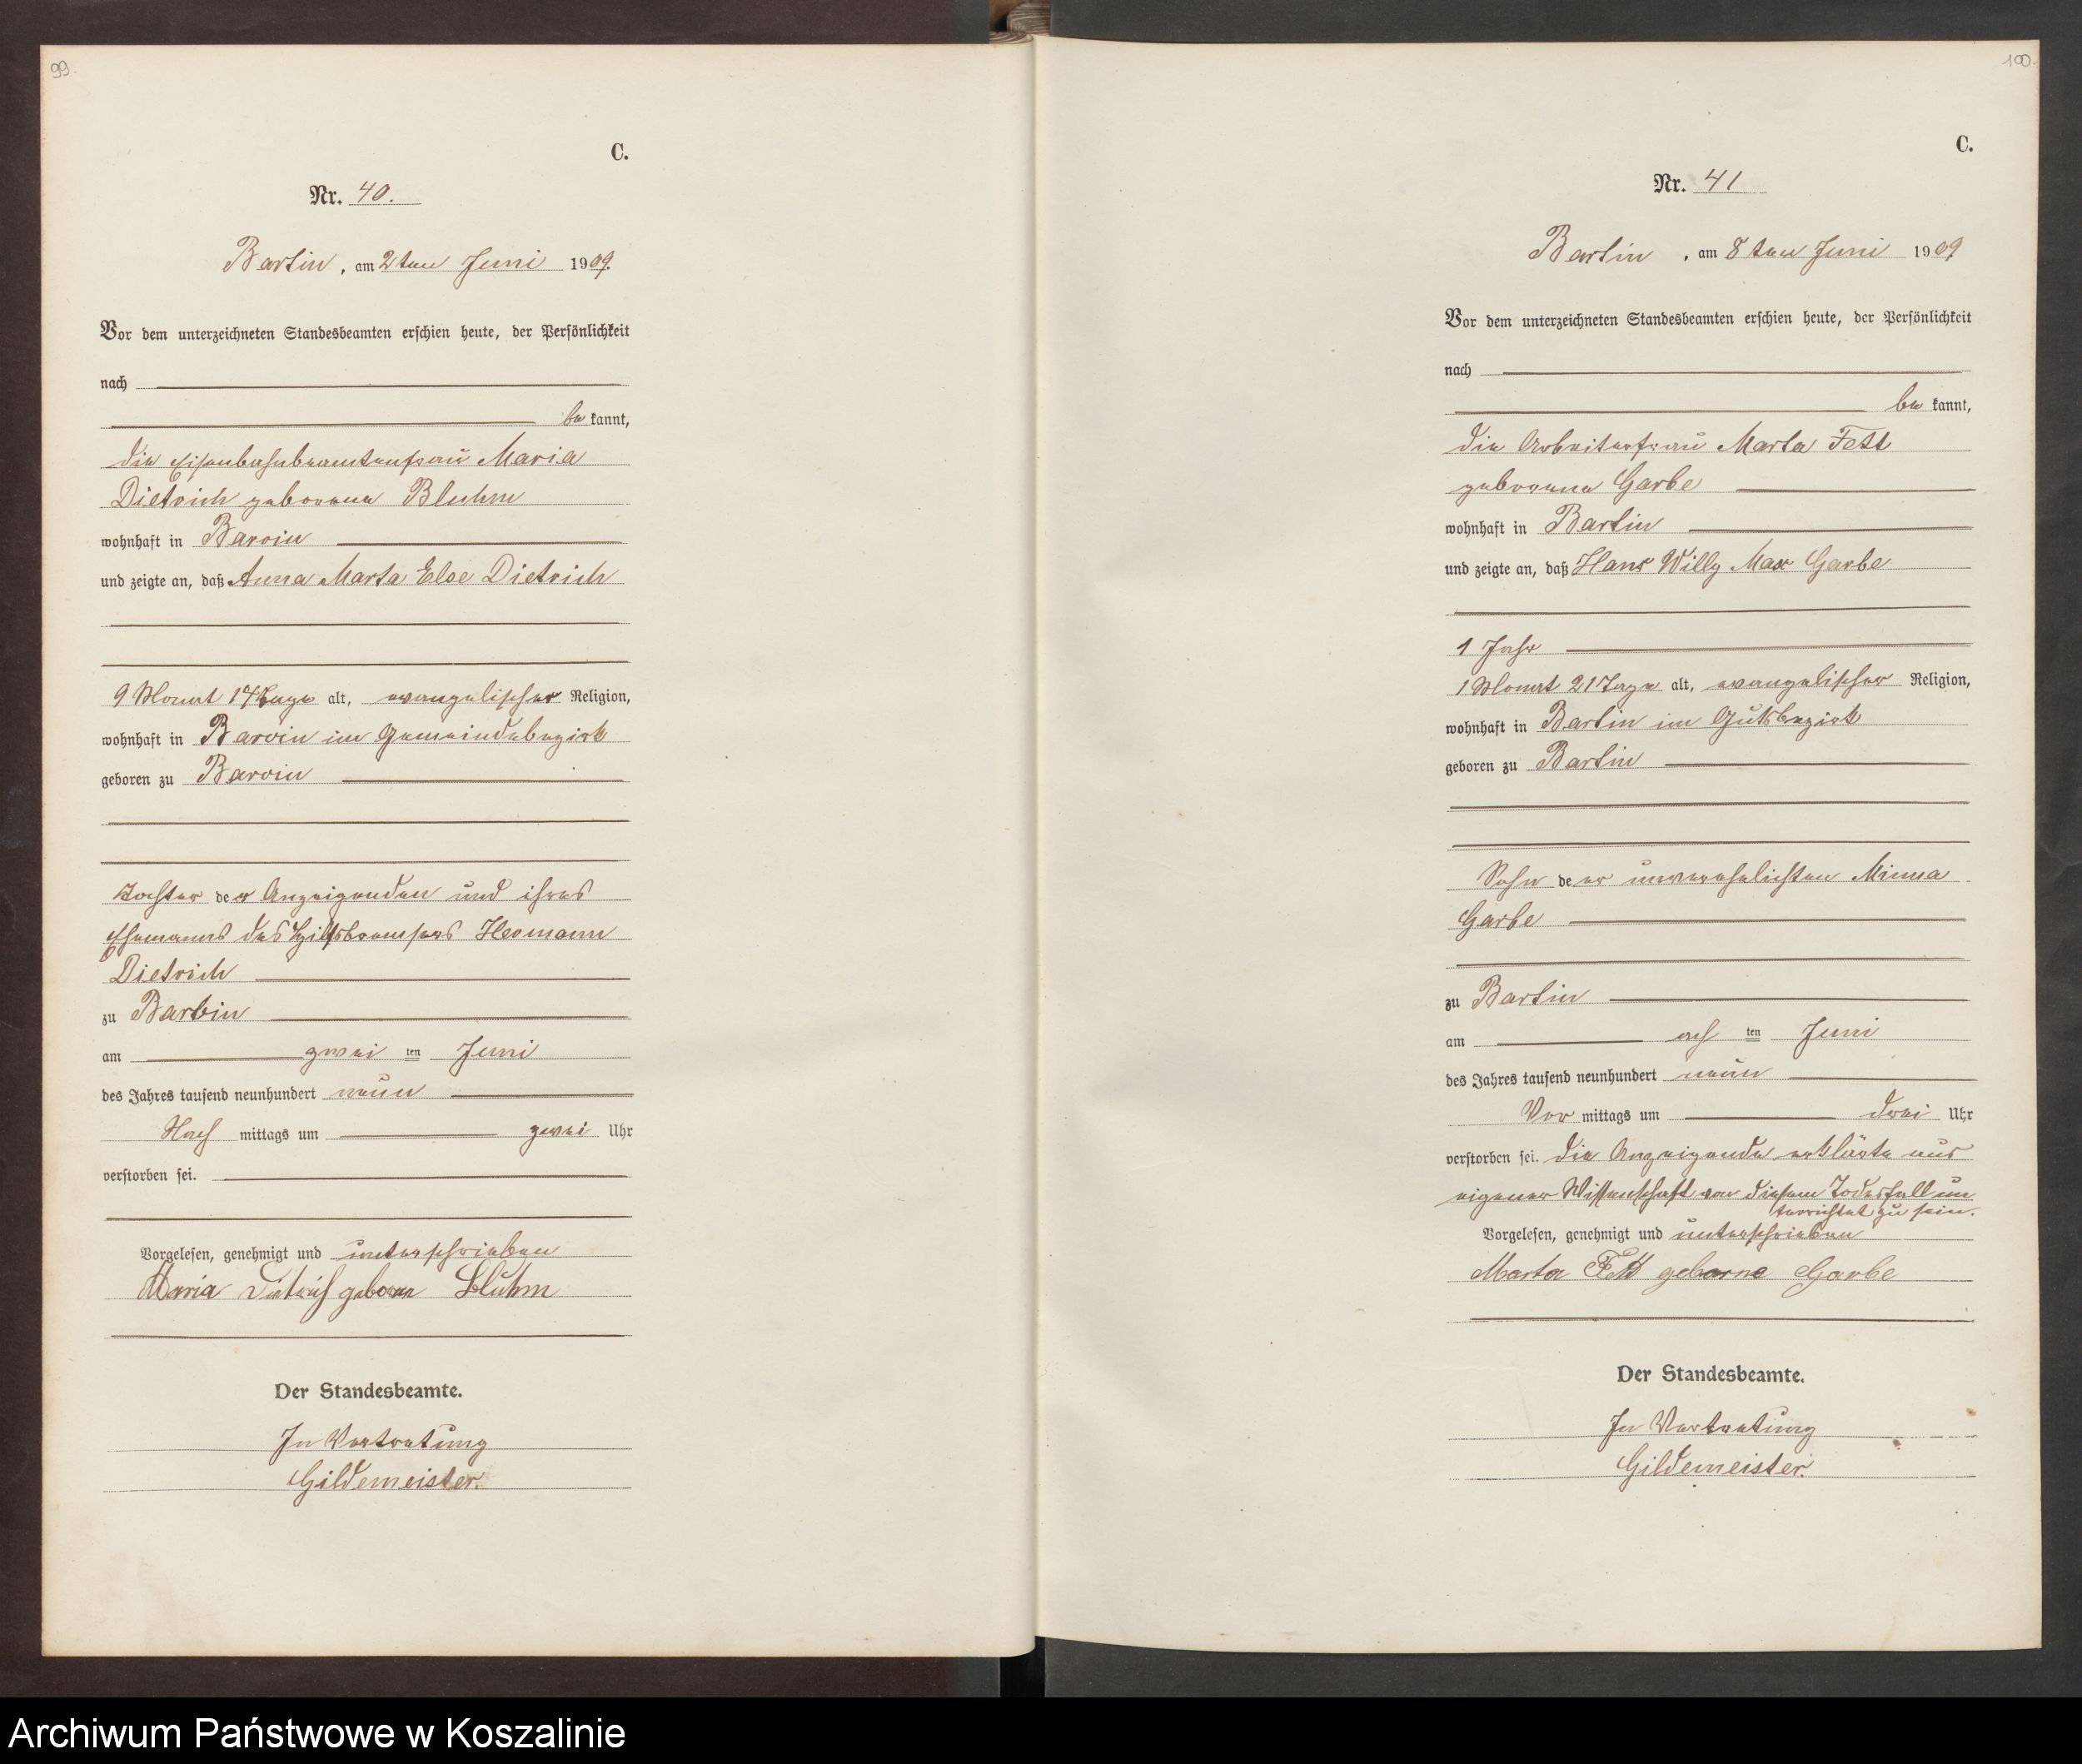 99.
C.
Nr. 40.
Bartin, am 2ten Juni 1909.
Vor dem unterzeichneten Standesbeamten erschien heute, der Persönlichkeit
nach
be kannt,
die Eisenbahnbeamtenfrau Maria
Dietrich geborene Bluhm
wohnhaft in Barvin
und zeigte an, daß Anna Marta Else Dietrich
9 Monat 17 Tage alt, evangelischer Religion,
wohnhaft in Barvin im Gemeindebezirk
geboren zu Barvin
Tochter der Anzeigenden und ihres
Ehemanns des Hilfsbremsers Hermann
Dietrich
zu Barvin
am zwei ten Juni
des Jahres tausend neunhundert neun
Nach mittags um zwei Uhr
verstorben sei.
Vorgelesen, genehmigt und unterschrieben
Maria Dietrich geboren Bluhm
Der Standesbeamte.
In Vertretung
Gildemeister.
100.
C.
Nr. 41
Bartin, am 8ten Juni 1909
Vor dem unterzeichneten Standesbeamten erschien heute, der Persönlichkeit
nach
be kannt,
die Arbeiterfrau Marta Fett
geborene Garbe
wohnhaft in Bartin
und zeigte an, daß Hans Willy Max Garbe
1 Jahr
1 Monat 21 Tage alt, evangelischer Religion,
wohnhaft in Bartin im Gutsbezirk
geboren zu Bartin
Sohn de er unverehelichten Minna
Garbe
zu Bartin
am ach ten Juni
des Jahres tausend neunhundert neun
Vor mittags um drei Uhr
verstorben sei. Die Anzeigende erklärte aus
eigener Wissenschaft von diesem Todesfall un
terrichtet zu sein.
Vorgelesen, genehmigt und unterschrieben
Marta Fett geborne Garbe
Der Standesbeamte.
In Vertretung
Gildemeister.
Archiwum Państwowe w Koszalinie